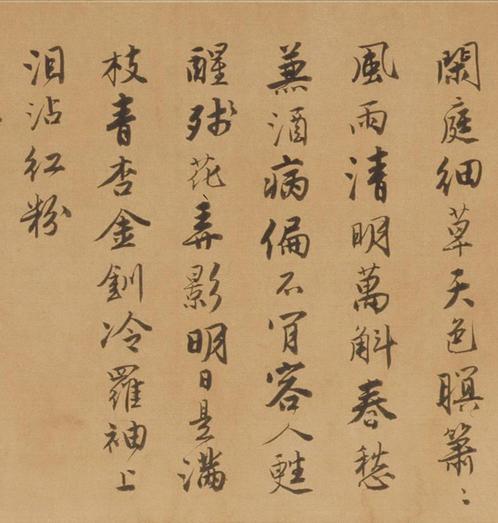 閑庭細草天色暝簫〻
風雨清明萬斛春愁
兼酒病偏不肎容人甦
醒殘花弄影明日是滿
枝青杏金釧冷羅袖上
泪沾紅粉